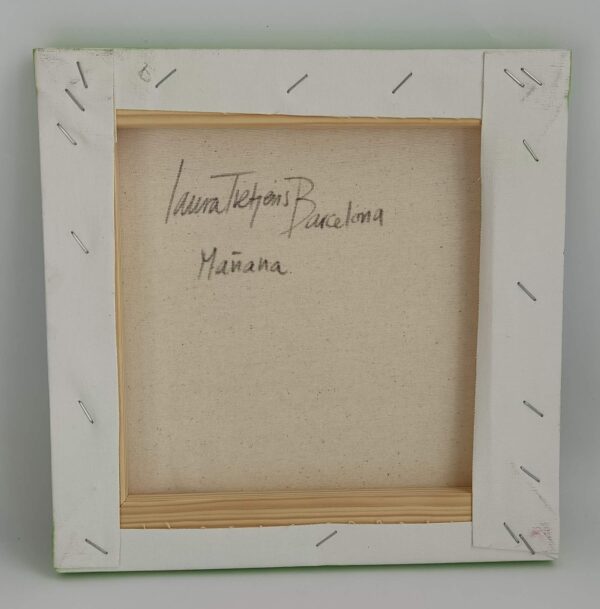 Laura Tietjens Barcelona
Mañana